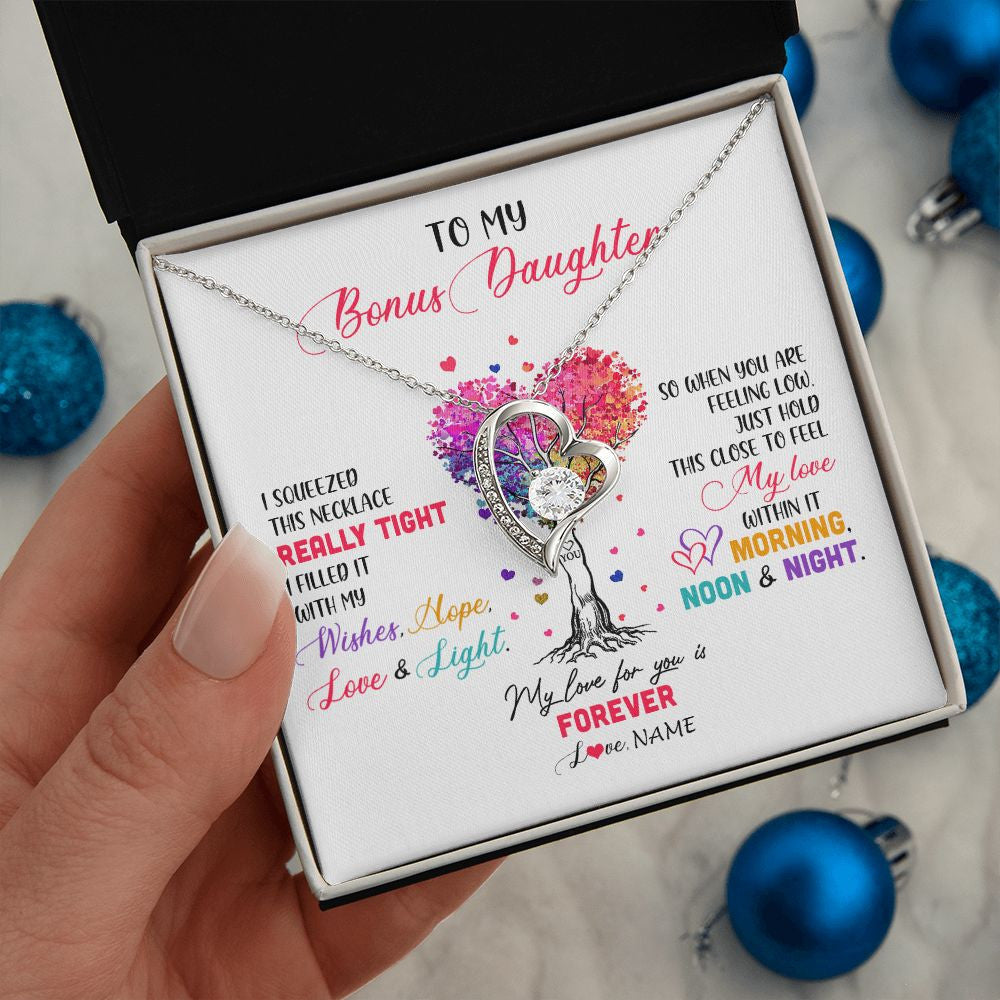 TO MY
Bonus Daughter
I SQUEEZED
THIS NECKLACE
REALLY TIGHT
I FILLED IT
WITH MY
Wishes, Hope,
Love & Light.
YOU
SO WHEN YOU ARE
FEELING LOW.
JUST HOLD
THIS CLOSE TO FEEL
My love
WITHIN IT
MORNING,
NOON & NIGHT.
My love for you is
FOREVER
Love, NAME